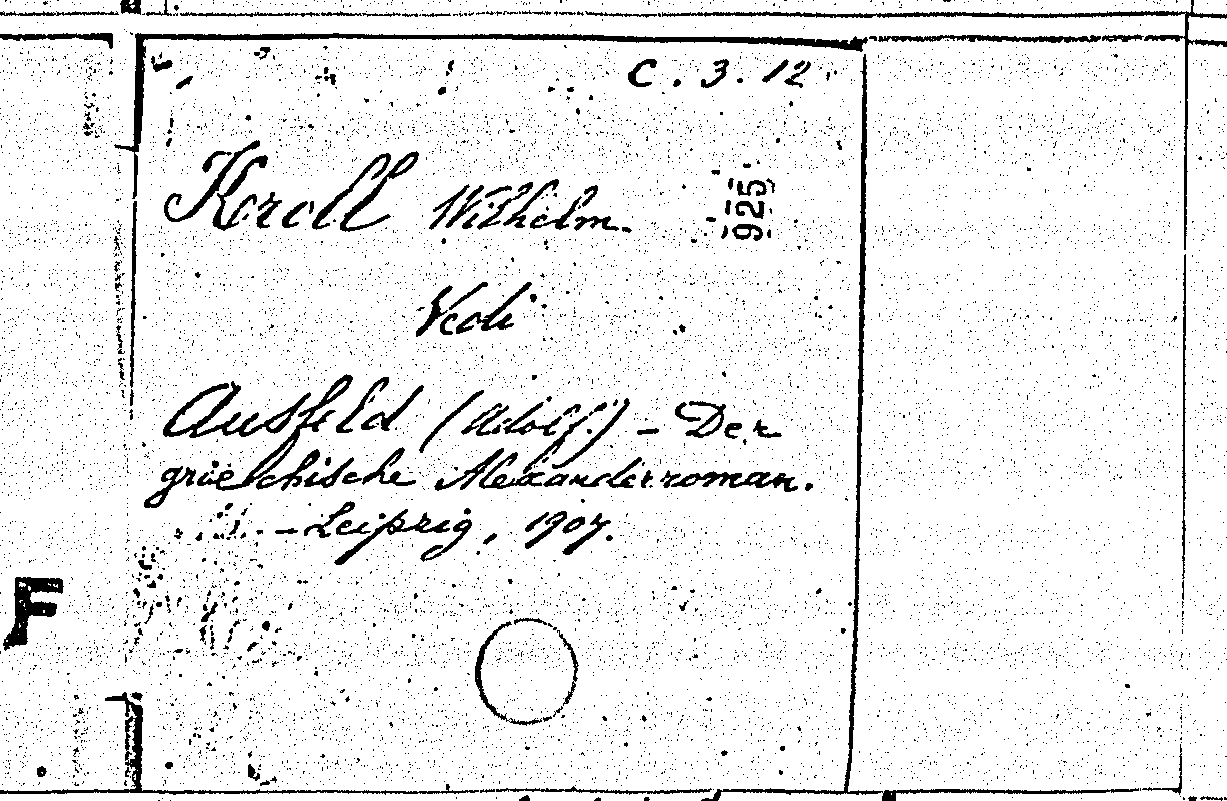 C. 3. 12
Kroll Wilhelm.
925
Vedi
Ausfeld (Adolf.) - Der
griechische Alexanderroman.
- Leipzig, 1907.
F